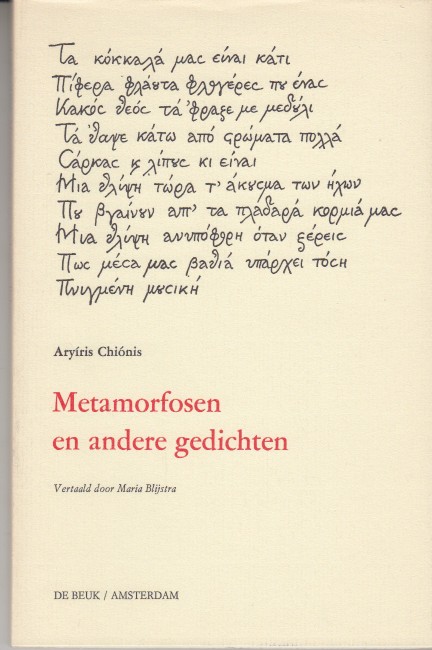 Τα κόκκαλά μας είναι κάτι
Πίφερα φλάουτα φλογέρες που ένας
Κακός θεός τά 'φραξε με μεδούλι
Τά 'θαψε κάτω από στρώματα πολλά
Σάρκας ϗ λίπους κι είναι
Μια θλίψη τώρα τ' άκουσμα των ήχων
Που βγαίνουν απ' τα πλαδαρά κορμιά μας
Μια θλίψη ανυπόφορη όταν ξέρεις
Πως μέσα μας βαθιά υπάρχει τόση
Πνιγμένη μουσική
Aryíris Chiónis
Metamorfosen
en andere gedichten
Vertaald door Maria Blijstra
DE BEUK / AMSTERDAM